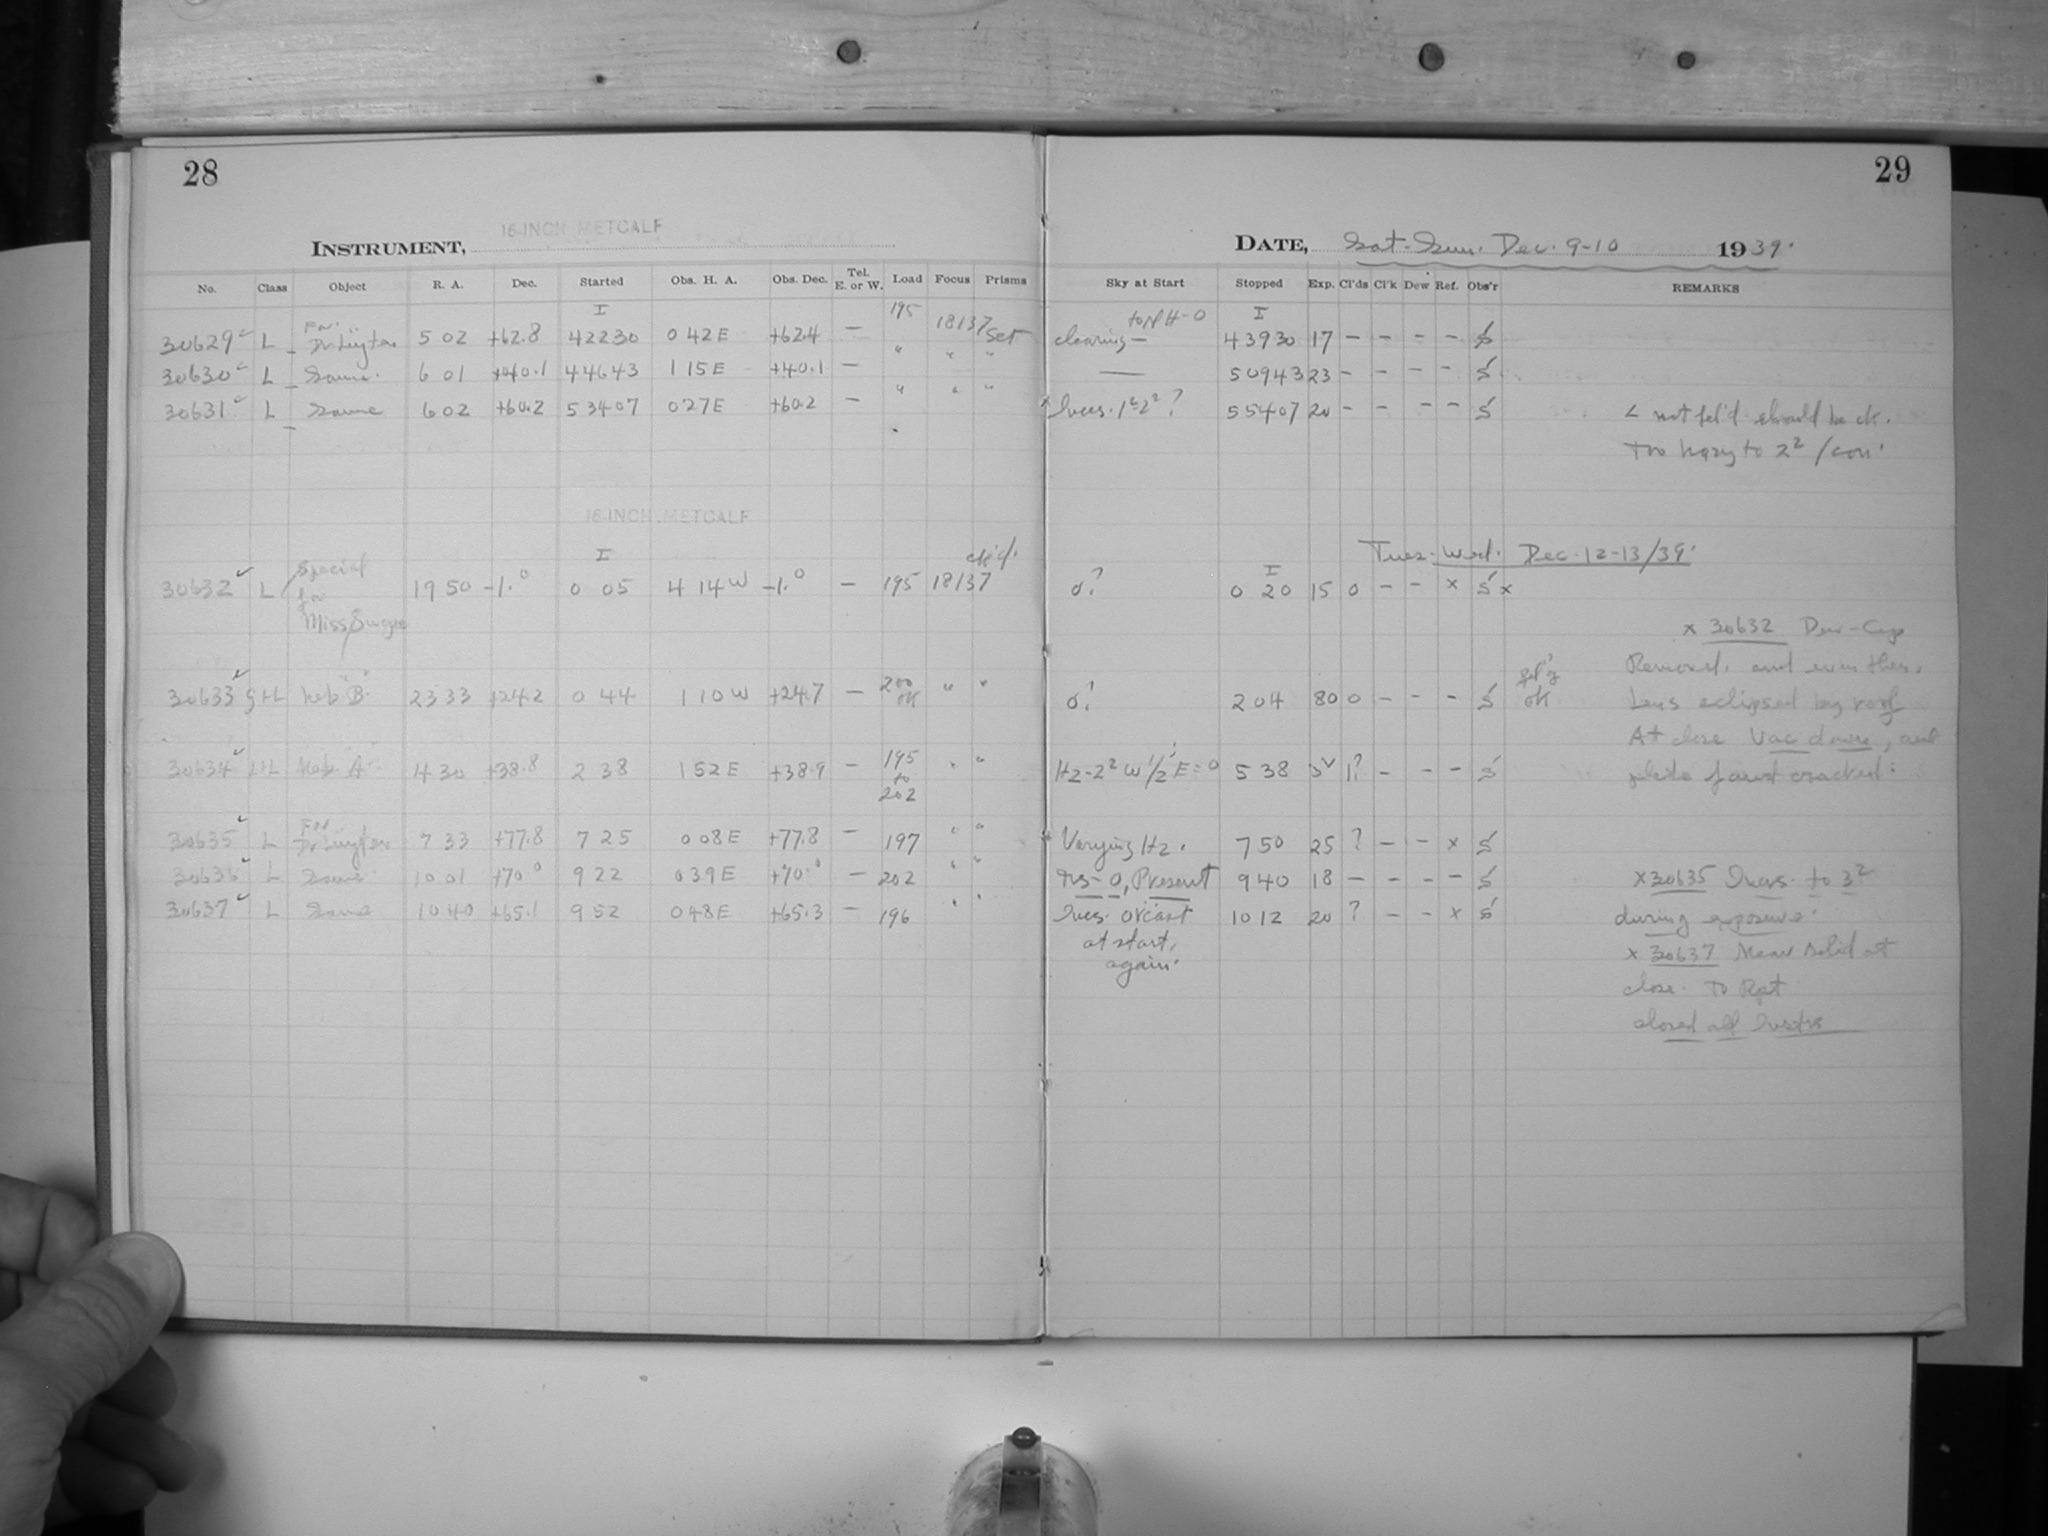 28
INSTRUMENT, 16-INCH METCALF
No. Class Object R. A. Dec. Started Obs. H. A. Obs. Dec. Tel. E. or W. Load Focus Prisms
30629 L For Dr Luyten 5 02 +62.8 I 42230 0 42 E +62.4 — 195 18137 Set
30630 L Same. 6 01 +40.1 44643 1 15 E +40.1 — " " "
30631 L Same 6 02 +60.2 53407 0 27 E +60.2 — " " "
16-INCH METCALF
30632 L Special for Miss 19 50 -1.° I 0 05 4 14 W -1.° — 195 18137 ck'd.
30633 "B" 23 33 +24.2 0 44 1 10 W +24.7 — 200 ok " "
30634 "A" 4 30 +38.8 2 38 1 52 E +38.9 — 195 to 202 " "
30635 L For Dr Luyten 7 33 +77.8 7 25 0 08 E +77.8 — 197 " "
30636 L Same 10 01 +70° 9 22 0 39 E +70.° — 202 " "
30637 L Same 10 40 +65.1 9 52 0 48 E +65.3 — 196 " "
29
DATE, Sat-Sun. Dec. 9-10 1939.
Sky at Start Stopped Exp. Cl'ds Cl'k Dew Ref. Obs'r REMARKS
clearing — I 43930 17 — — — — S
— 50943 23 — — — — S
Incs. ? 55407 20 — — — — S < not should be ck.
Too hazy to 2² / con.
Tues-Wed. Dec. 12-13/39.
0? I 0 20 15 0 — — x S x
x 30632 Dew-Cap
Removed, and even then,
0? 2 04 80 0 — — — S ok Lens eclipsed by roof
At close Vac down, and
Hz-2² W 1/2 E=0 5 38 1? — — — S plate cracked.
Varying Hz. 7 50 25 ? — — x S
0, Present 9 40 18 — — — — S x 30635 Incrs. to 3²
Incs. o'cast 10 12 20 ? — — x S during exposure.
at start, x 30637 Near solid at
again. close. To Rpt
closed all Instrs